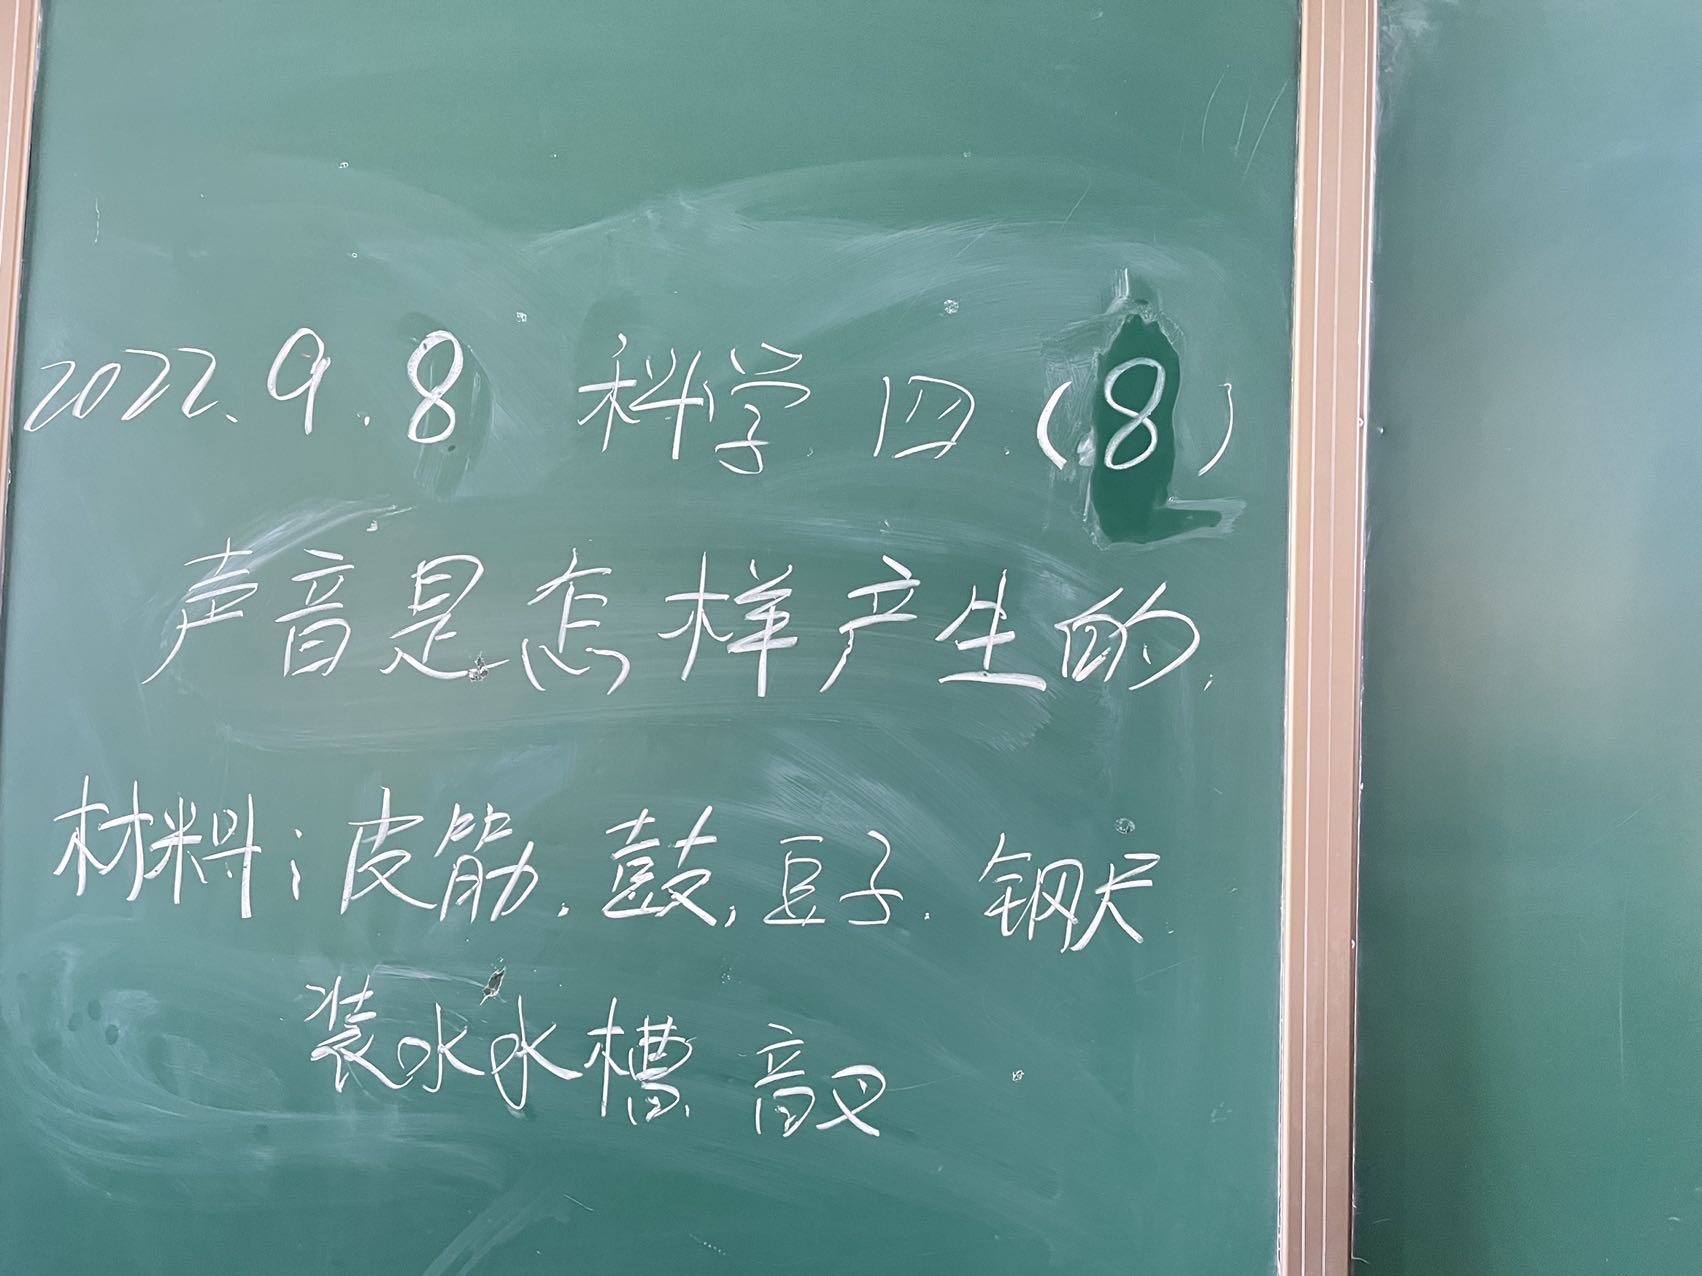 2022.9.8 科学 四.(8)
声音是怎样产生的.
材料:皮筋.鼓,豆子.钢尺
装水水槽 音叉